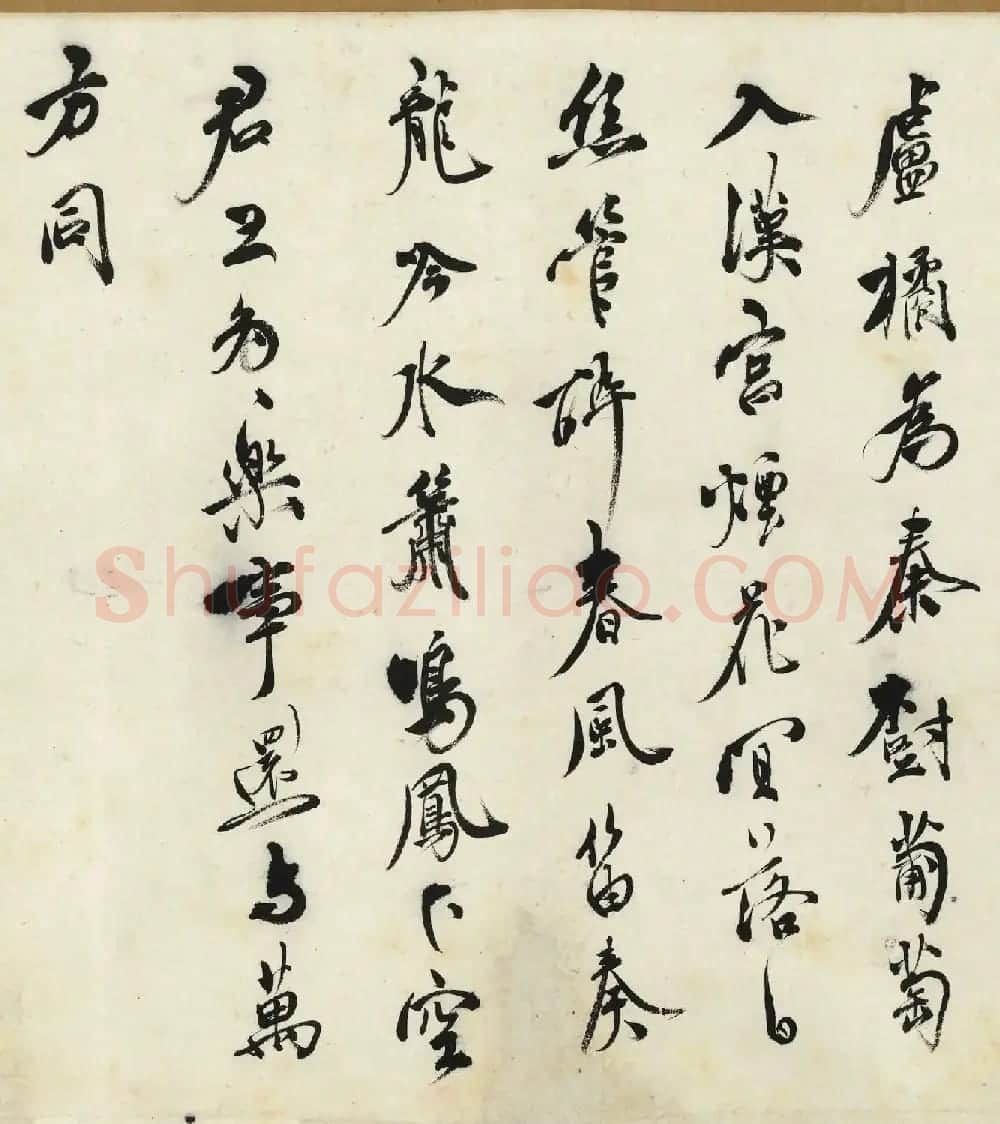 盧橘為秦樹葡萄
入漢宮煙花宜落日
絲管醉春風笛奏
龍吟水簫鳴鳳下空
君王多樂事還与萬
方同
Shufaziliao.COM